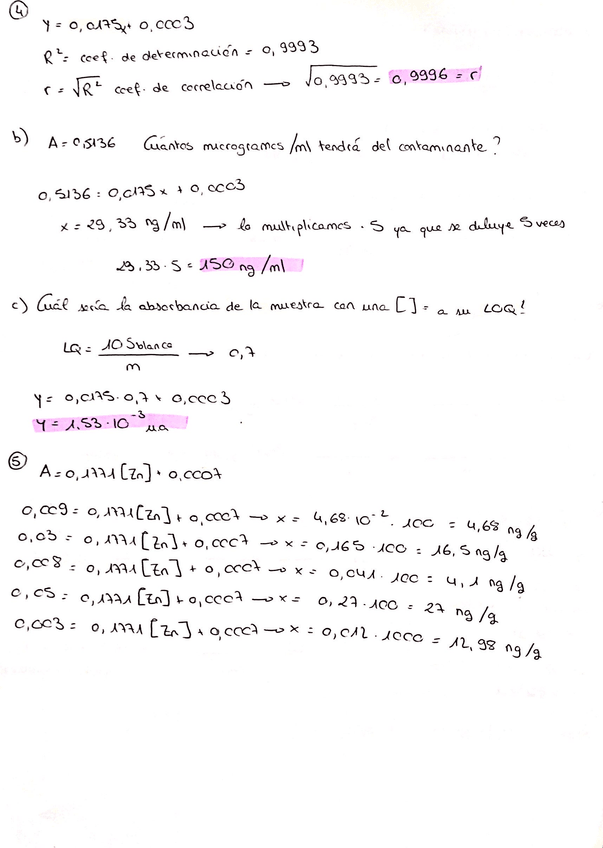 ④ Y = 0,0175x + 0,0003
R²= coef. de determinación = 0,9993
r = √R² coef. de correlación → √0,9993 = 0,9996 = r
b) A = 0,5136 Cuántos microgramos /ml tendrá del contaminante ?
0,5136 = 0,0175 x + 0,0003
x = 29,33 ng/ml → lo multiplicamos · 5 ya que se diluye 5 veces
29,33 · 5 = 150 ng/ml
c) Cuál sería la absorbancia de la muestra con una [ ] = a su LOQ!
LQ = 10 Sblanco / m → 0,7
Y = 0,0175 · 0,7 + 0,0003
Y = 1,53 · 10⁻³ ua
⑤ A = 0,1771 [Zn] + 0,0007
0,009 = 0,1771 [Zn] + 0,0007 → x = 4,68·10⁻² · 100 = 4,68 ng/g
0,03 = 0,1771 [Zn] + 0,0007 → x = 0,165 · 100 = 16,5 ng/g
0,008 = 0,1771 [Zn] + 0,0007 → x = 0,041 · 100 = 4,1 ng/g
0,05 = 0,1771 [Zn] + 0,0007 → x = 0,27 · 100 = 27 ng/g
0,003 = 0,1771 [Zn] + 0,0007 → x = 0,012 · 1000 = 12,98 ng/g